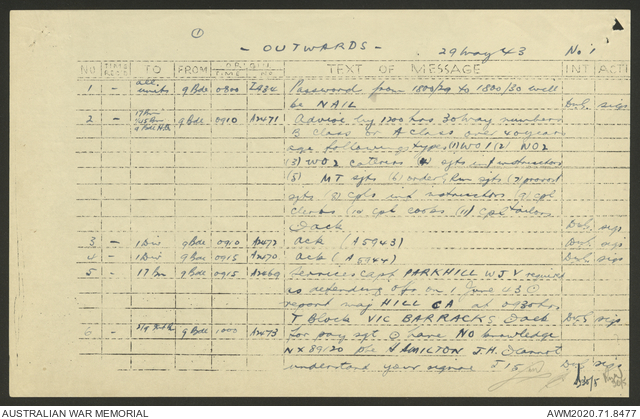 ①
- OUTWARDS - 29 May 43 No. 1
NO TIME TO FROM ORIGIN TIME NO TEXT OF MESSAGE INT ACTI
1 - all units 9 Bde 0800 I934 Password from 1800/29 to 1800/30 will
be NAIL sigs
2 - 17 9 Bde 0910 A2471 Advise by 1200 hrs 30 May numbers
B class or A class over 40 years
age following types (1) WO1 (2) WO2
(3) WO2 caterers (4) sgts inf instructors
(5) MT sgts (6) order, Rm sgts (7) provost
sgts (8) cpls inf instructors (9) cpl
clerks (10) cpl cooks (11) cpl tailors
sigs
3 - 1 Div 9 Bde 0910 A2472 ack (A5943) sigs
4 - 1 Div 9 Bde 0915 A2470 ack (A5944) sigs
5 - 17 9 Bde 0915 A2469 Services Capt PARKHILL W J V required
as defending offr on 1 June 43
report maj HILL CA at 0930 hrs
T Block VIC BARRACKS sigs
6 - 9 Bde 1000 A2473 for pay sgt have NO knowledge
NX89120 pte HAMILTON J.H. cannot
understand your signal sigs
AUSTRALIAN WAR MEMORIAL AWM2020.71.8477